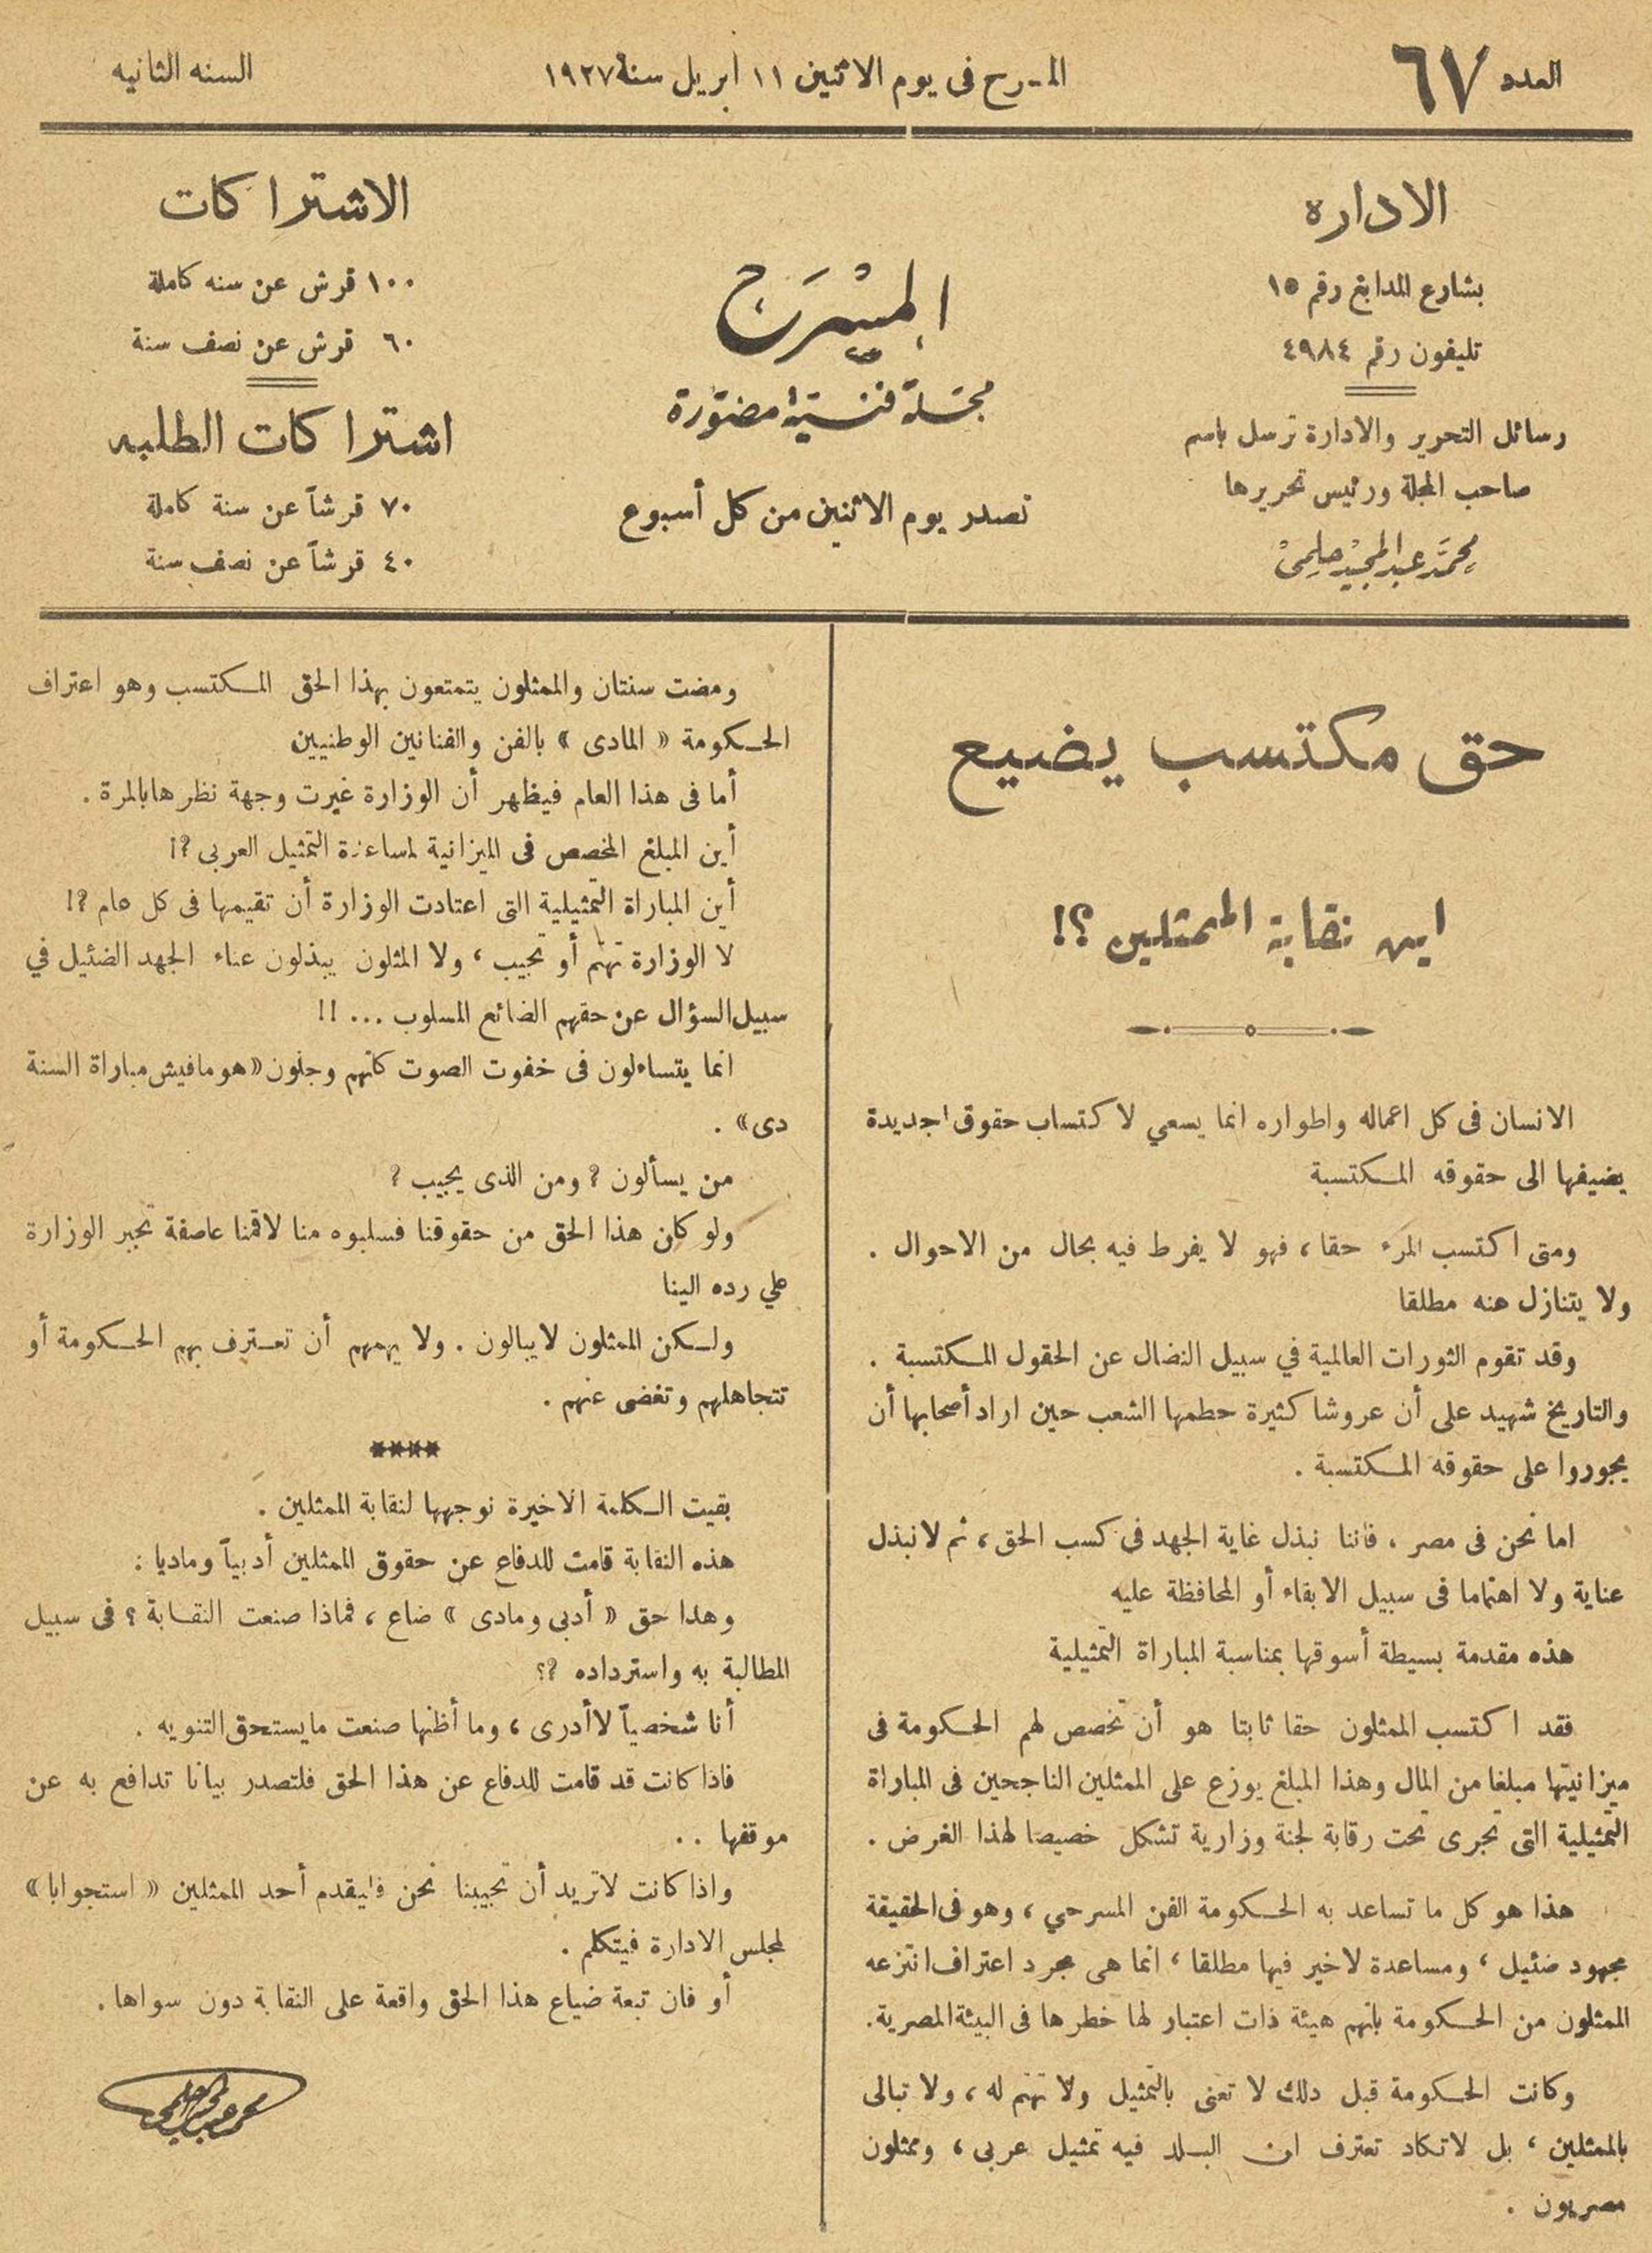 العدد ٦٧
المسرح فى يوم الاثنين ١١ ابريل سنة ١٩٢٧
السنه الثانيه
الاداره
بشارع المدابغ رقم ١٥
تليفون رقم ٤٩٨٤
رسائل التحرير والادارة ترسل باسم
صاحب المجلة ورئيس تحريرها
محمد عبد المجيد حلمى
المسرح
مجلة فنية مصورة
تصدر يوم الاثنين من كل أسبوع
الاشتراكات
١٠٠ قرش عن سنه كاملة
٦٠ قرش عن نصف سنة
اشتراكات الطلبه
٧٠ قرشاً عن سنة كاملة
٤٠ قرشاً عن نصف سنة
حق مكتسب يضيع
اين نقابة الممثلين ؟!
الانسان فى كل اعماله واطواره انما يسعي لاكتساب حقوق اجديدة
يضيفها الى حقوقه المكتسبة
ومتى اكتسب المرء حقا ، فهو لا يفرط فيه بحال من الاحوال .
ولا يتنازل عنه مطلقا
وقد تقوم الثورات العالمية في سبيل النضال عن الحقول المكتسبة .
والتاريخ شهيد على أن عروشا كثيرة حطمها الشعب حين اراد أصحابها أن
يجوروا على حقوقه المكتسبة .
اما نحن فى مصر ، فاننا نبذل غاية الجهد فى كسب الحق ، ثم لا نبذل
عناية ولا اهتماما فى سبيل الابقاء أو المحافظة عليه
هذه مقدمة بسيطة أسوقها بمناسبة المباراة التمثيلية
فقد اكتسب الممثلون حقا ثابتا هو أن تخصص لهم الحكومة فى
ميزانيتها مبلغا من المال وهذا المبلغ يوزع على الممثلين الناجحين فى المباراة
التمثيلية التى تجرى تحت رقابة لجنة وزارية تشكل خصيصا لهذا الغرض .
هذا هو كل ما تساعد به الحكومة الفن المسرحي ، وهو فى الحقيقة
مجهود ضئيل ، ومساعدة لاخير فيها مطلقا ، انما هى مجرد اعتراف انتزعه
الممثلون من الحكومة بانهم هيئة ذات اعتبار لها خطرها فى البيئة المصرية.
وكانت الحكومة قبل ذلك لا تعنى بالتمثيل ولا تهتم له ، ولا تبالى
بالممثلين ، بل لاتكاد تعترف ان البلد فيه تمثيل عربى ، وممثلون
مصريون .
ومضت سنتان والممثلون يتمتعون بهذا الحق المكتسب وهو اعتراف
الحكومة « المادى » بالفن والفنانين الوطنيين
أما فى هذا العام فيظهر أن الوزارة غيرت وجهة نظرها بالمرة .
أين المبلغ المخصص فى الميزانية لمساعدة التمثيل العربى ؟!
أين المباراة التمثيلية التى اعتادت الوزارة أن تقيمها فى كل عام ؟!
لا الوزارة تهتم أو تجيب ، ولا المثلون يبذلون عناء الجهد الضئيل في
سبيل السؤال عن حقهم الضائع المسلوب ... !!
انما يتساءلون فى خفوت الصوت كانهم وجلون « هو مافيش مباراة السنة
دى » .
من يسألون ؟ ومن الذى يجيب ؟
ولو كان هذا الحق من حقوقنا فسلبوه منا لاقمنا عاصفة تجبر الوزارة
علي رده الينا
ولكن الممثلون لا يبالون . ولا يهمهم أن تعترف بهم الحكومة أو
تتجاهلهم وتغضى عنهم .
****
بقيت الكلمة الاخيرة نوجهها لنقابة الممثلين .
هذه النقابة قامت للدفاع عن حقوق الممثلين أدبياً وماديا :
وهذا حق « أدبى ومادى » ضاع ، فماذا صنعت النقابة ؟ فى سبيل
المطالبة به واسترداده ؟؟
أنا شخصياً لا أدرى ، وما أظنها صنعت ما يستحق التنويه .
فاذا كانت قد قامت للدفاع عن هذا الحق فلتصدر بيانا تدافع به عن
موقفها . .
واذا كانت لا تريد أن تجيبنا نحن فليقدم أحد الممثلين « استجوابا »
لمجلس الادارة فيتكلم .
أو فان تبعة ضياع هذا الحق واقعة على النقابة دون سواها .
محمد عبد المجيد حلمى